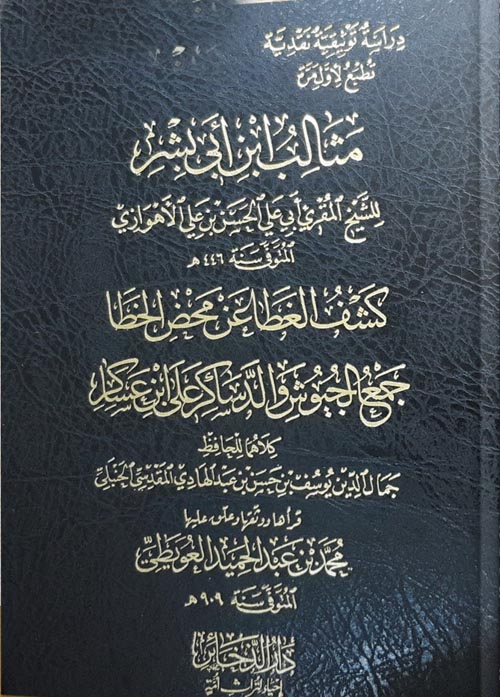 دِرَاسَةٌ تَوْثِيقِيَّةٌ نَقْدِيَّة
تُطْبَعُ لِأَوَّلِ مَرَّة
مَثَالِبُ ابْنِ أَبِي بِشْرٍ
لِلشَّيْخِ المُقْرِئِ أَبِي عَلِي الحَسَنِ بْنِ عَلِيٍّ الأَهْوَازِي
المُتَوَفَّى سَنَة ٤٤٦ هـ
كَشْفُ الغَطَا عَنْ مَحْضِ الخَطَا
جَمْعُ الجُيُوشِ وَالدَّسَاكِرِ عَلَى ابْنِ عَسَاكِر
كلاهما للحافظ
جَمَالِ الدِّينِ يُوسُفَ بْنِ حَسَنِ بْنِ عَبْدِ الهَادِي المَقْدِسِيِّ الحَنْبَلِي
قرأها ووثقها وعلق عليها
مُحَمَّدُ بْنُ عَبْدِ الحَمِيدِ العُوَيْطِيُّ
المُتَوَفَّى سَنَة ٩٠٩ هـ
دَارُ الذَّخَائِر
إحياء لتراث أمة